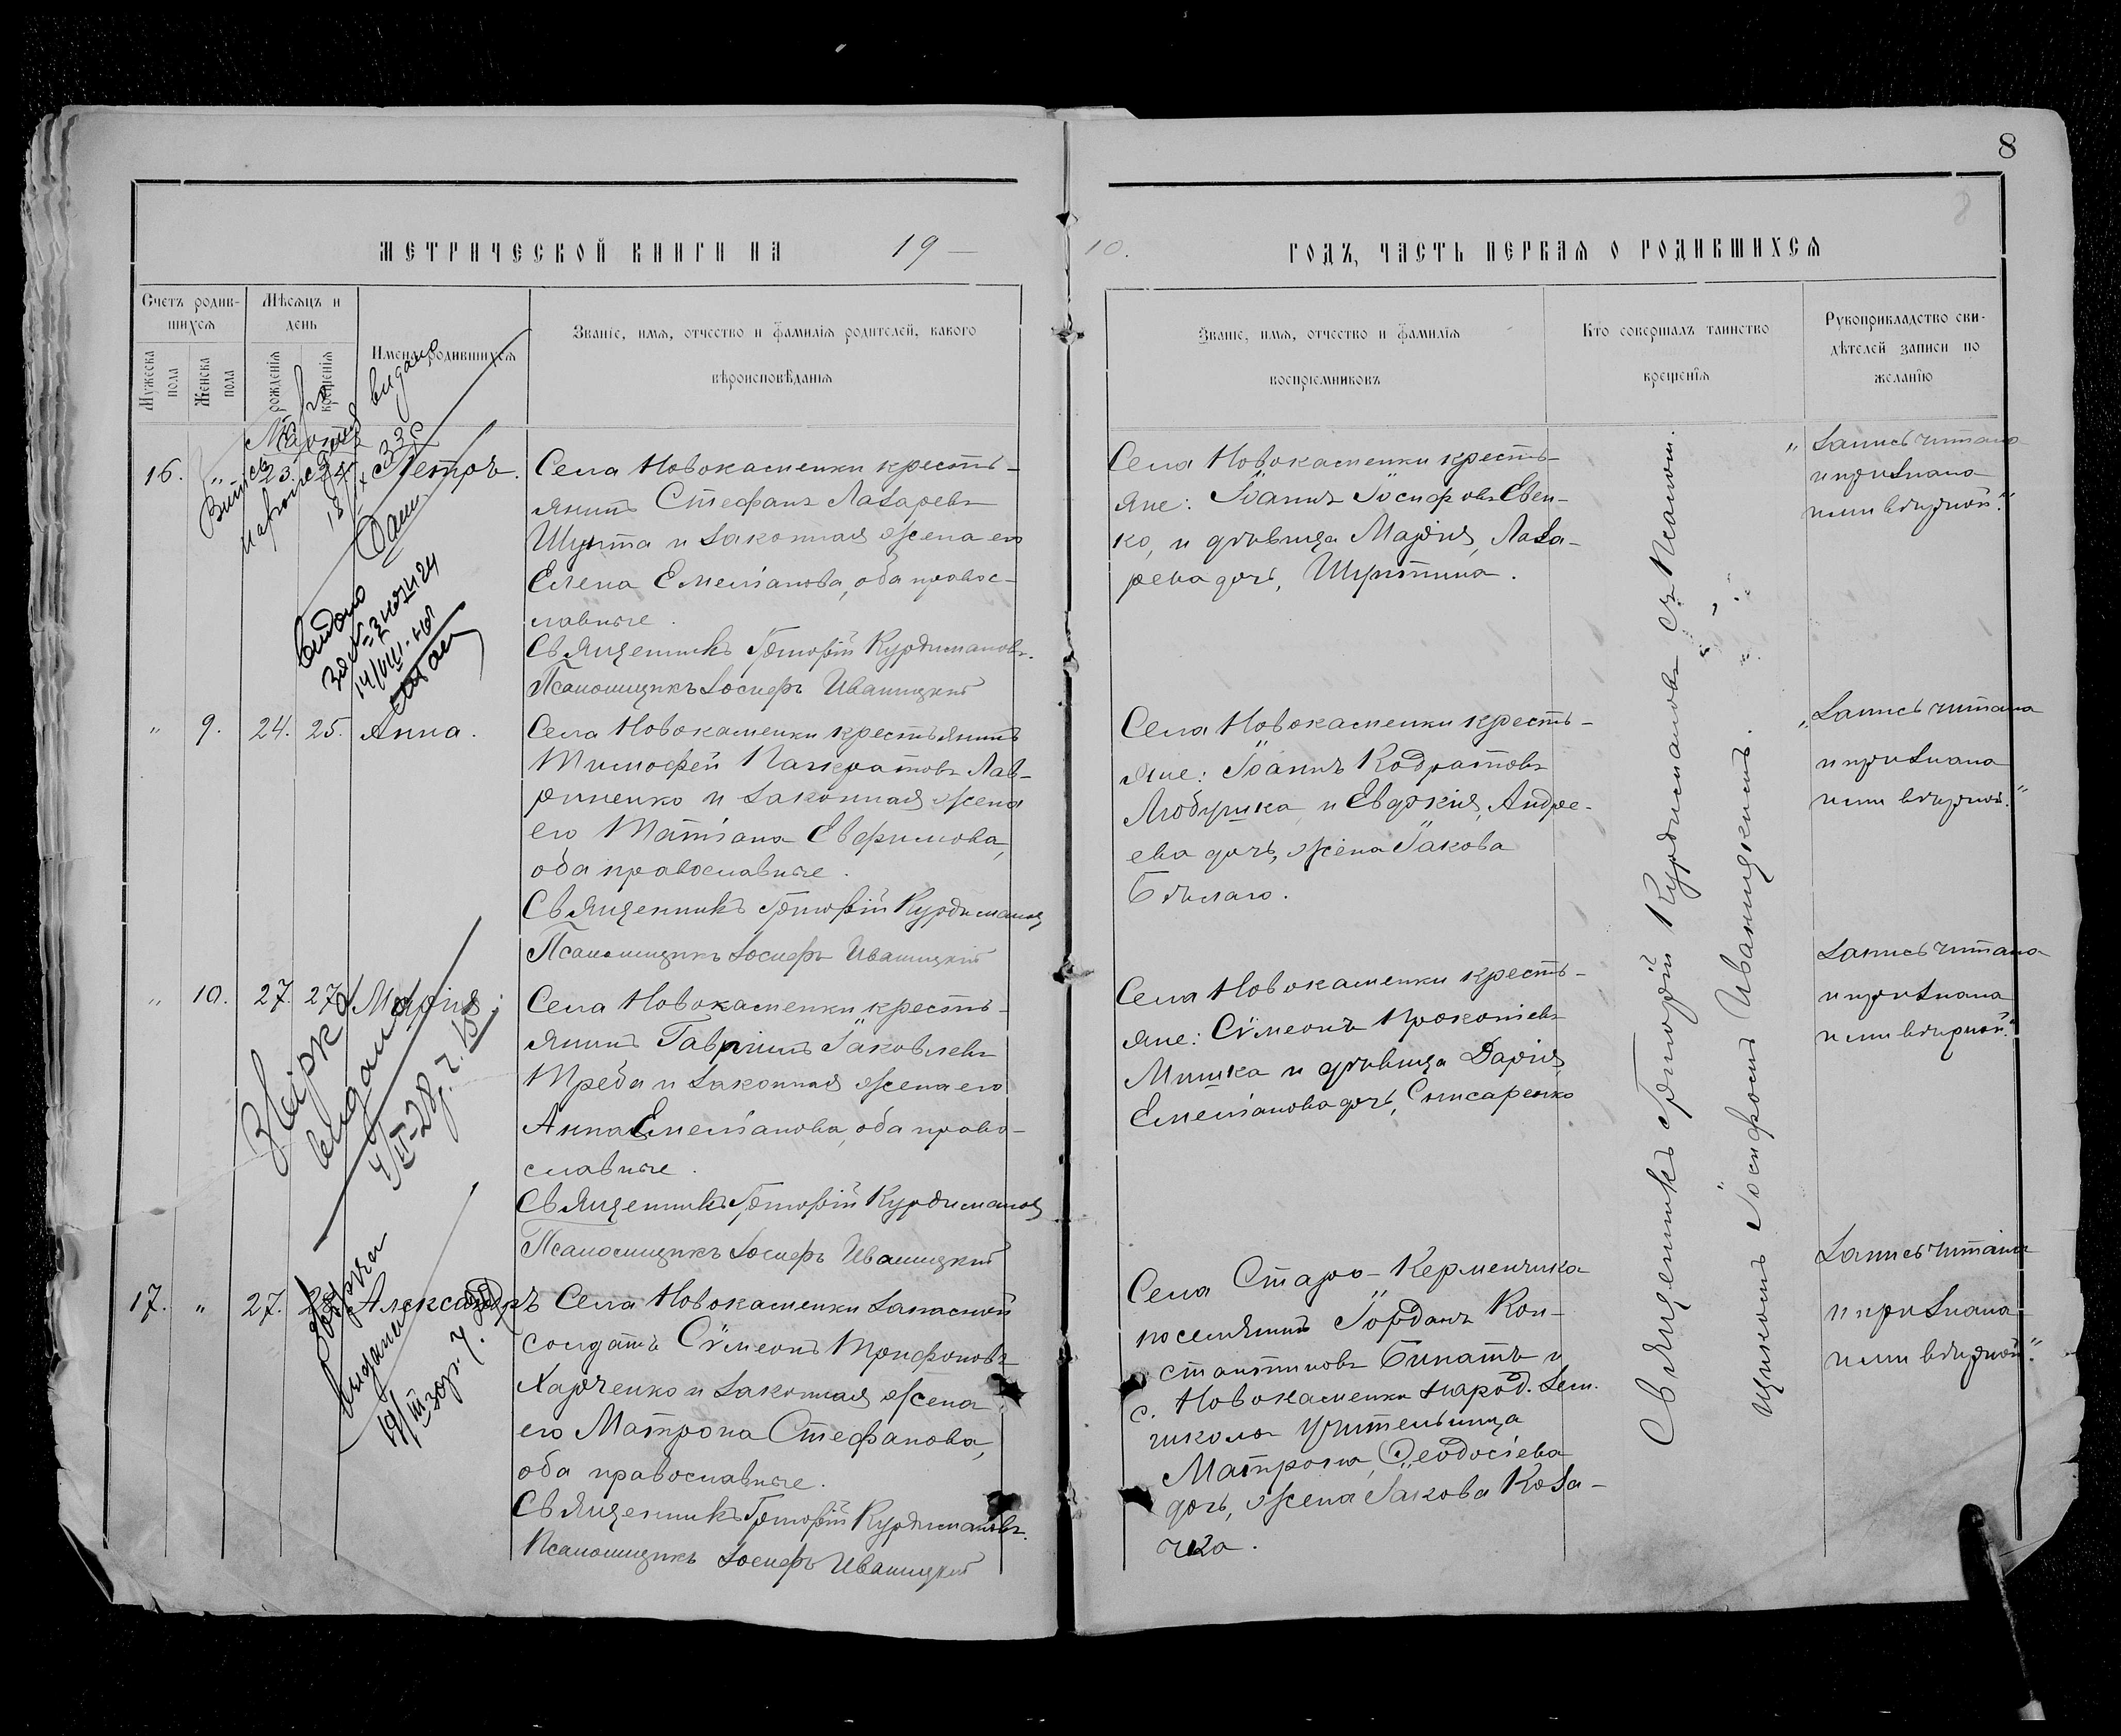 8
МЕТРИЧЕСКОЙ КНИГИ НА 19 —
10. ГОДЪ, ЧАСТЬ ПЕРВАЯ О РОДИВШИХСЯ
Счетъ родив-
шихся
Мужеска пола
Женска пола
Мѣсяцъ и
день
рожденія
крещенія
Имена родившихся
Званіе, имя, отчество и фамилія родителей, какого
вѣроисповѣданія
Званіе, имя, отчество и фамилія
воспріемниковъ
Кто совершалъ таинство
крещенія
Рукоприкладство сви-
дѣтелей записи по
желанію
16. " 23. 24. Петръ.
Села Новокаменки кресть-
янинъ Стефанъ Лазаревъ
Шурта и законная жена его
Елена Емеліанова, оба правос-
лавные.
Священникъ Григорій Курдимановъ.
Псаломщикъ Іосифъ Иваницкій
Села Новокаменки кресть-
яне: Іоаннъ Іосифовъ Евен-
ко, и дѣвица Марія, Лаза-
рева дочь,
"Запись читана
и признана
нами вѣрной."
" 9. 24. 25. Анна.
Села Новокаменки крестьянинъ
Тимофей Панкратовъ Лав-
риненко и законная жена
его Татіана Евфимова,
оба православные.
Священникъ Григорій Курдимановъ
Псаломщикъ Іосифъ Иваницкій
Села Новокаменки кресть-
яне: Іоаннъ Кодратовъ
Любушка и Евдокія, Андре-
ева дочь, жена Іакова
Бѣлаго.
"Запись читана
и признана
нами вѣрной."
" 10. 27. 27. Марія.
Села Новокаменки кресть-
янинъ Гавріилъ Іаковлевъ
Треба и законная жена его
Анна Емеліанова, оба право-
славные.
Священникъ Григорій Курдимановъ
Псаломщикъ Іосифъ Иваницкій
Села Новокаменки кресть-
яне: Сѵмеонъ Прокопіевъ
Мишка и дѣвица Дарія,
Емеліанова дочь, Снисаренко
Запись читана
и признана
нами вѣрной."
17. " 27. 28. Александръ
Села Новокаменки запасной
солдатъ Сѵмеонъ Трифоновъ
Харченко и законная жена
его Матрона Стефанова,
оба православные.
Священникъ Григорій Курдимановъ.
Псаломщикъ Іосифъ Иваницкій
Села Старо-Керменчика
поселянинъ Іорданъ Кон-
стантиновъ Бинатъ и
с. Новокаменки народ. зем.
школы учительница
Матрона, Ѳеодосіева
дочь, жена Іакова Коза-
чка.
Запись читана
и признана
нами вѣрной."
Священникъ Григорій Курдимановъ съ Псалом-
щикомъ Іосифомъ Иваницкимъ.
видано
видано
видана
видана